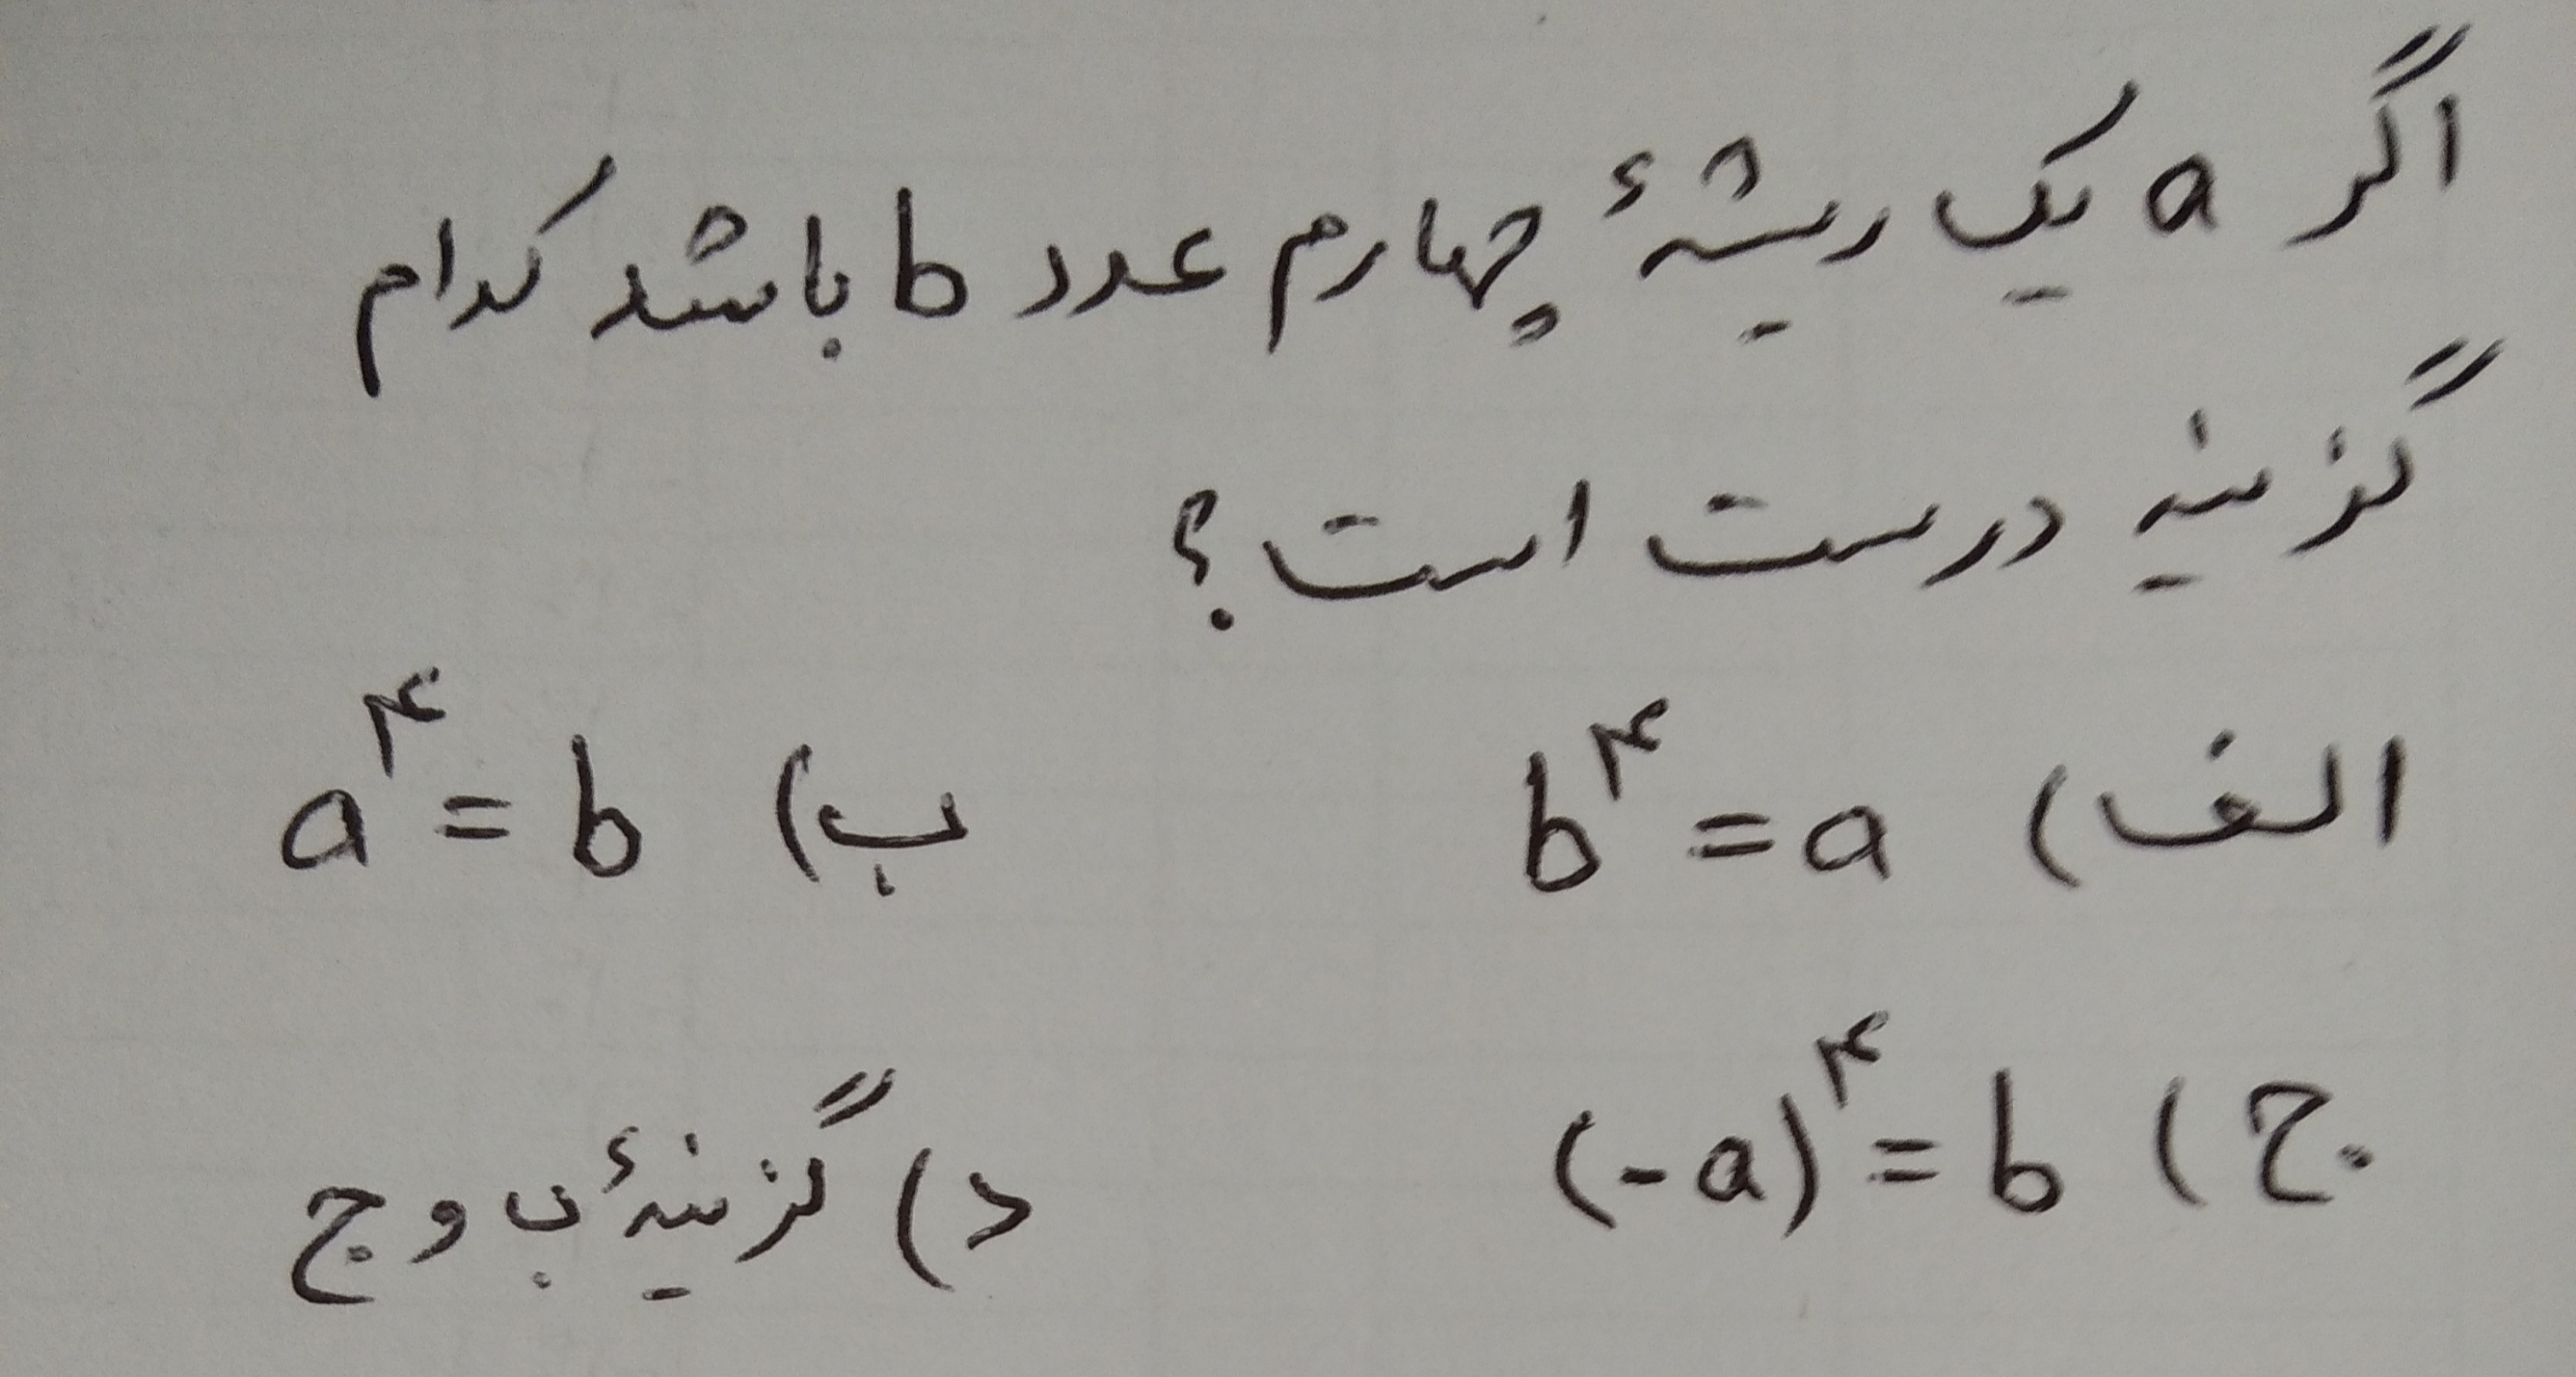 اگر a یک ریشهٔ چهارم عدد b باشد کدام
گزینه درست است؟
الف) b⁴ = a ب) a⁴ = b
ج) (-a)⁴ = b د) گزینهٔ ب و ج